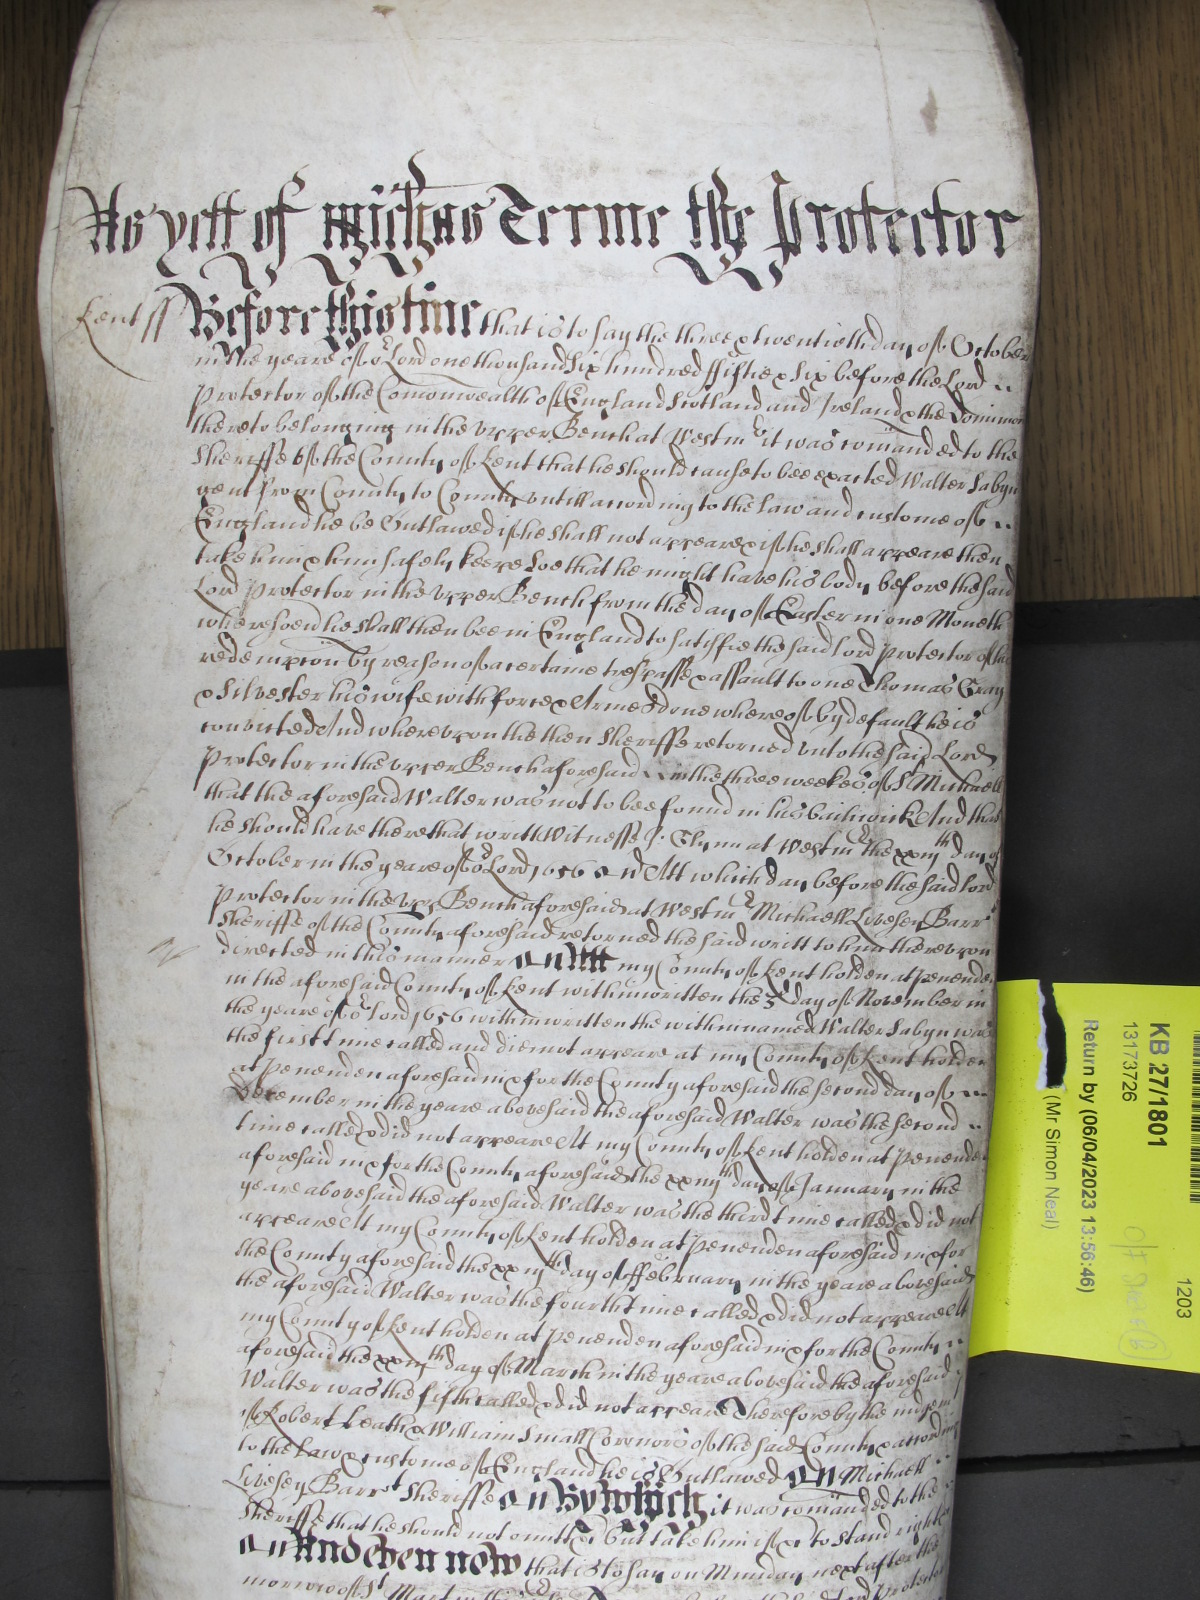 As yett of Michas Terme the Protector
Kent ss Before this time that is to say the three & twentieth day of October
in the yeare of or Lord one thousand Six hundred ffiftie & Six before the Lord
Protector of the Comonwealth of England Scotland and Ireland & the Dominions
thereto belonging in the upper Bench at Westmr it was comanded to the
Sheriffe of the County of Kent that he should cause to bee exacted Walter Sabyn
gent from County to County untill according to the law and custome of
England he be Outlawed if he shall not appeare & if he shall appeare then
take him & him safely keepe Soe that he might have his body before the said
Lord Protector in the upper Bench from the day of Easter in one Moneth
wheresoevr he shall then bee in England to satisfie the said lord protector of his
redempcon by reason of a certaine trespasse & assault to one Thomas Gray
& Silvester his wife with force & Armes done whereof by default he is
convicted And whereupon the then Sheriffe returned unto the said Lord
Protector in the upper Bench aforesaid in the three weekes of St Michaell
that the aforesaid Walter was not to bee found in his bailiwick And that
he should have there that writt Witnesse J. Glynn at Westmr the xxiijth day of
October in the yeare of or Lord 1656 Att which day before the said lord
Protector in the upp Bench aforesaid at Westmr Michaell Livesey Barrt
Sheriffe of the County aforesaid returned the said writt to him thereupon
directed in this manner Att my County of Kent holden at Penenden
in the aforesaid County of Kent within written the 3d day of November in
the yeare of or lord 1656 within written the within named Walter Sabyn was
the first time called and die not appeare at my County of Kent holden
at Penenden aforesaid in & for the County aforesaid the second day of
December in the yeare abovesaid the aforesaid Walter was the second
time called & did not appeare At my County of Kent holden at Penenden
aforesaid in & for the County aforesaid the day of January in the
yeare abovesaid the aforesaid Walter was the third time called & did not
appeare At my County of Kent holden at Penenden aforesaid in & for
the County aforesaid the day of ffebruary in the yeare abovesaid
the aforesaid Walter was the fourth time called & did not appeare At
my County of Kent holden at Penenden aforesaid in & for the County
aforesaid the day of March in the yeare abovesaid the aforesaid
Walter was the fifth called & did not appeare Therefore by the
of Robert Heath & William Small Coronors of the said County according
to the law & custome of England he is Outlawed Michaell
Livesey Barrt Sheriffe By which it was comanded to the
Sheriffe that he should not omitt but take him to stand right
And even now that is to say on Munday next after the
morrow of St Martin
KB 27/1801
13173726
Return by (06/04/2023 13:56:46)
(Mr Simon Neal)
1203